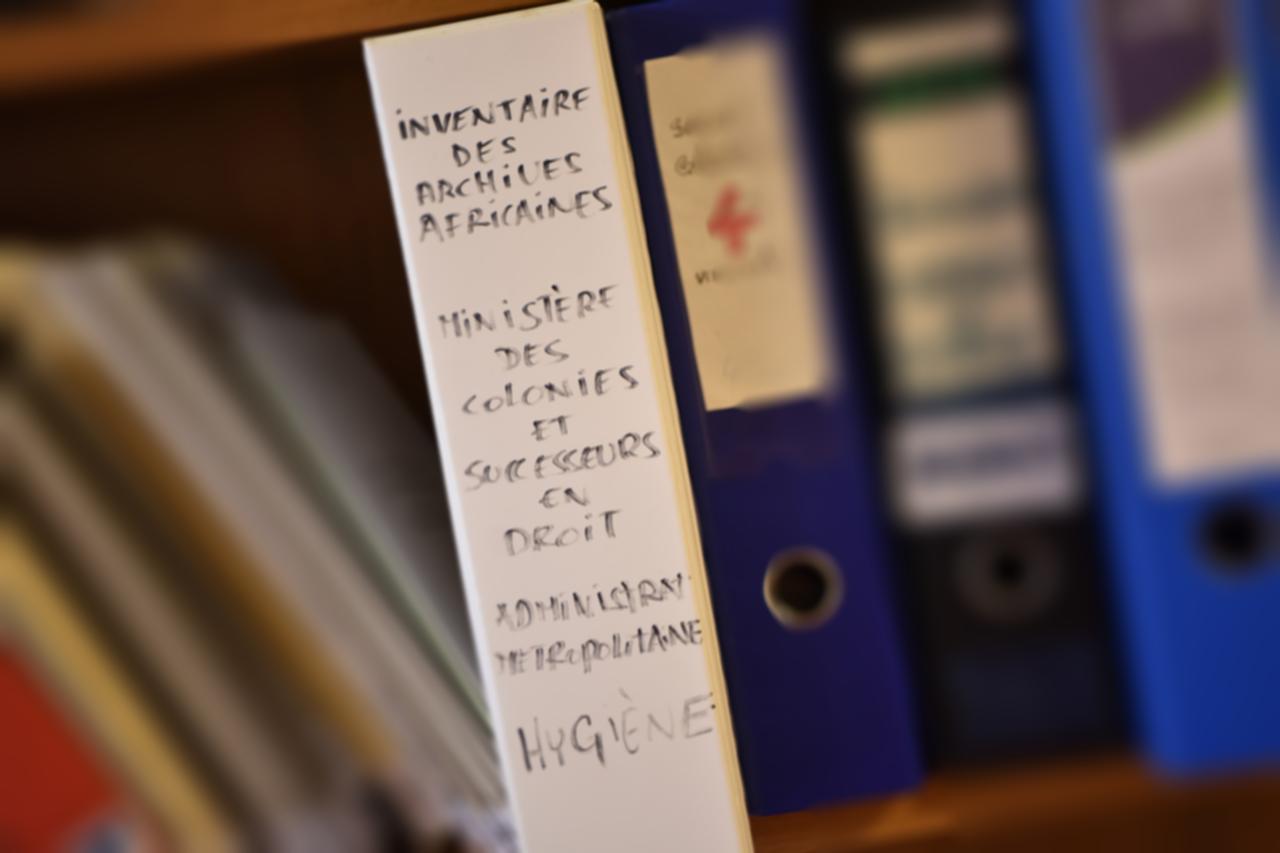 INVENTAIRE
DES
ARCHIVES
AFRICAINES
MINISTÈRE
DES
COLONIES
ET
SUCCESSEURS
EN
DROIT
ADMINISTRAT.
METROPOLITAINE
HYGIÈNE
4